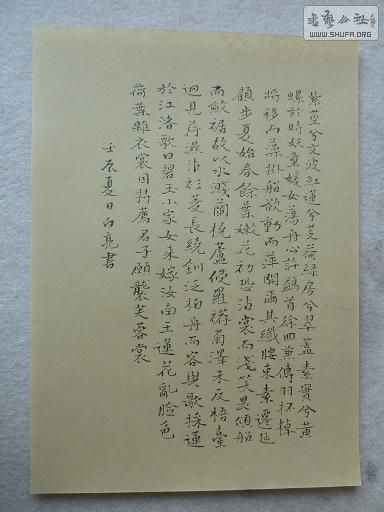 紫莖兮文波紅蓮兮芰荷綠房兮翠蓋素實兮黃
螺於時妖童媛女蕩舟心許鷁首徐回兼傳羽杯棹
將移而藻掛船欲動而萍開爾其纖腰束素遷延
顧步夏始春餘葉嫩花初恐沾裳而淺笑畏傾船
而斂裾故以水濺蘭橈蘆侵羅襪菊澤未反梧臺
迥見荇濕沾衫菱長繞釧泛柏舟而容與歌採蓮
於江渚歌曰碧玉小家女來嫁汝南王蓮花亂臉色
荷葉雜衣裳因持薦君子願襲芙蓉裳
壬辰夏日白亮書
書藝公社
WWW.SHUFA.ORG